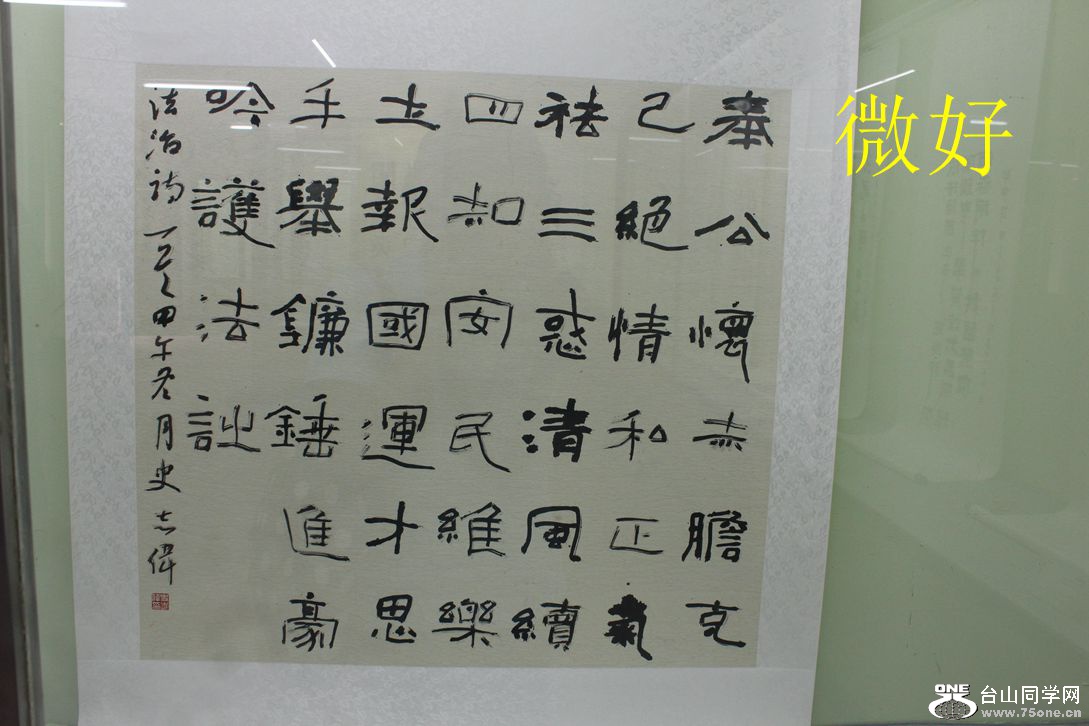 奉公懷赤膽克
己絕情和正氣
祛三惑清風續
四知安民維樂
土報國運才思
手舉鐮錘進豪
吟護法訑
法治詩一首甲午冬月史志偉
微好
ONE
台山同学网
www.75one.cn